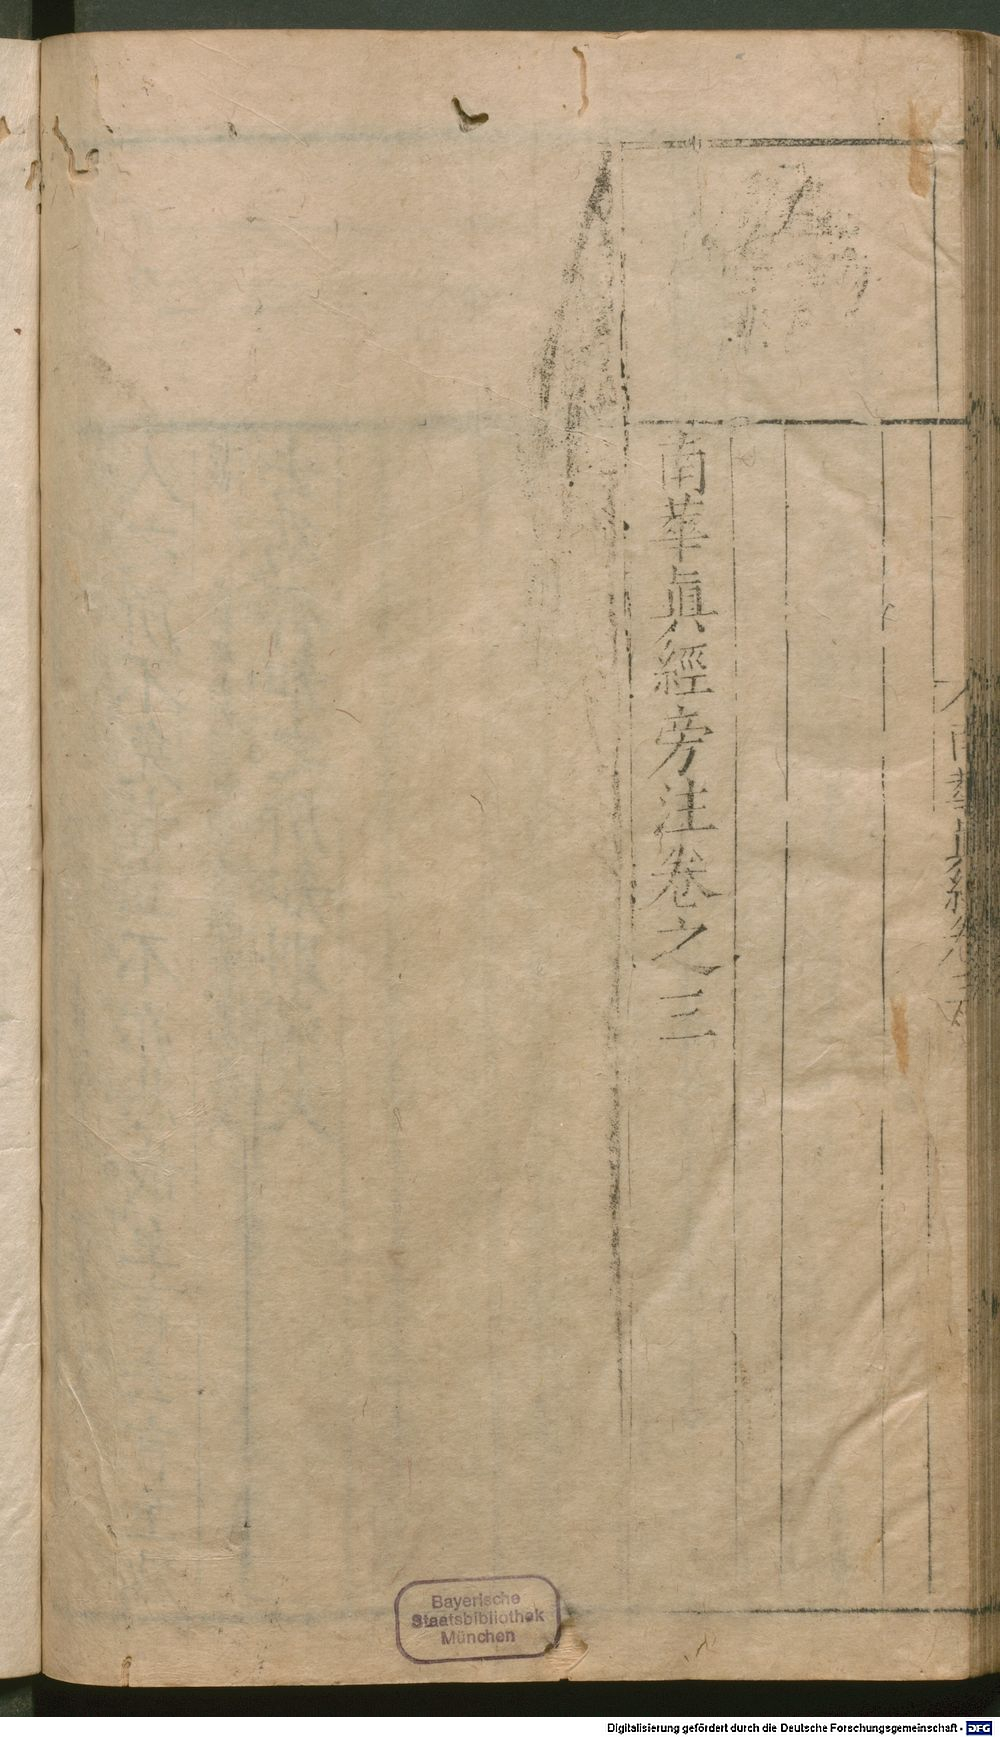 南華眞經旁注卷之三
Bayerische
Staatsbibliothek
München
Digitalisierung gefördert durch die Deutsche Forschungsgemeinschaft - DFG